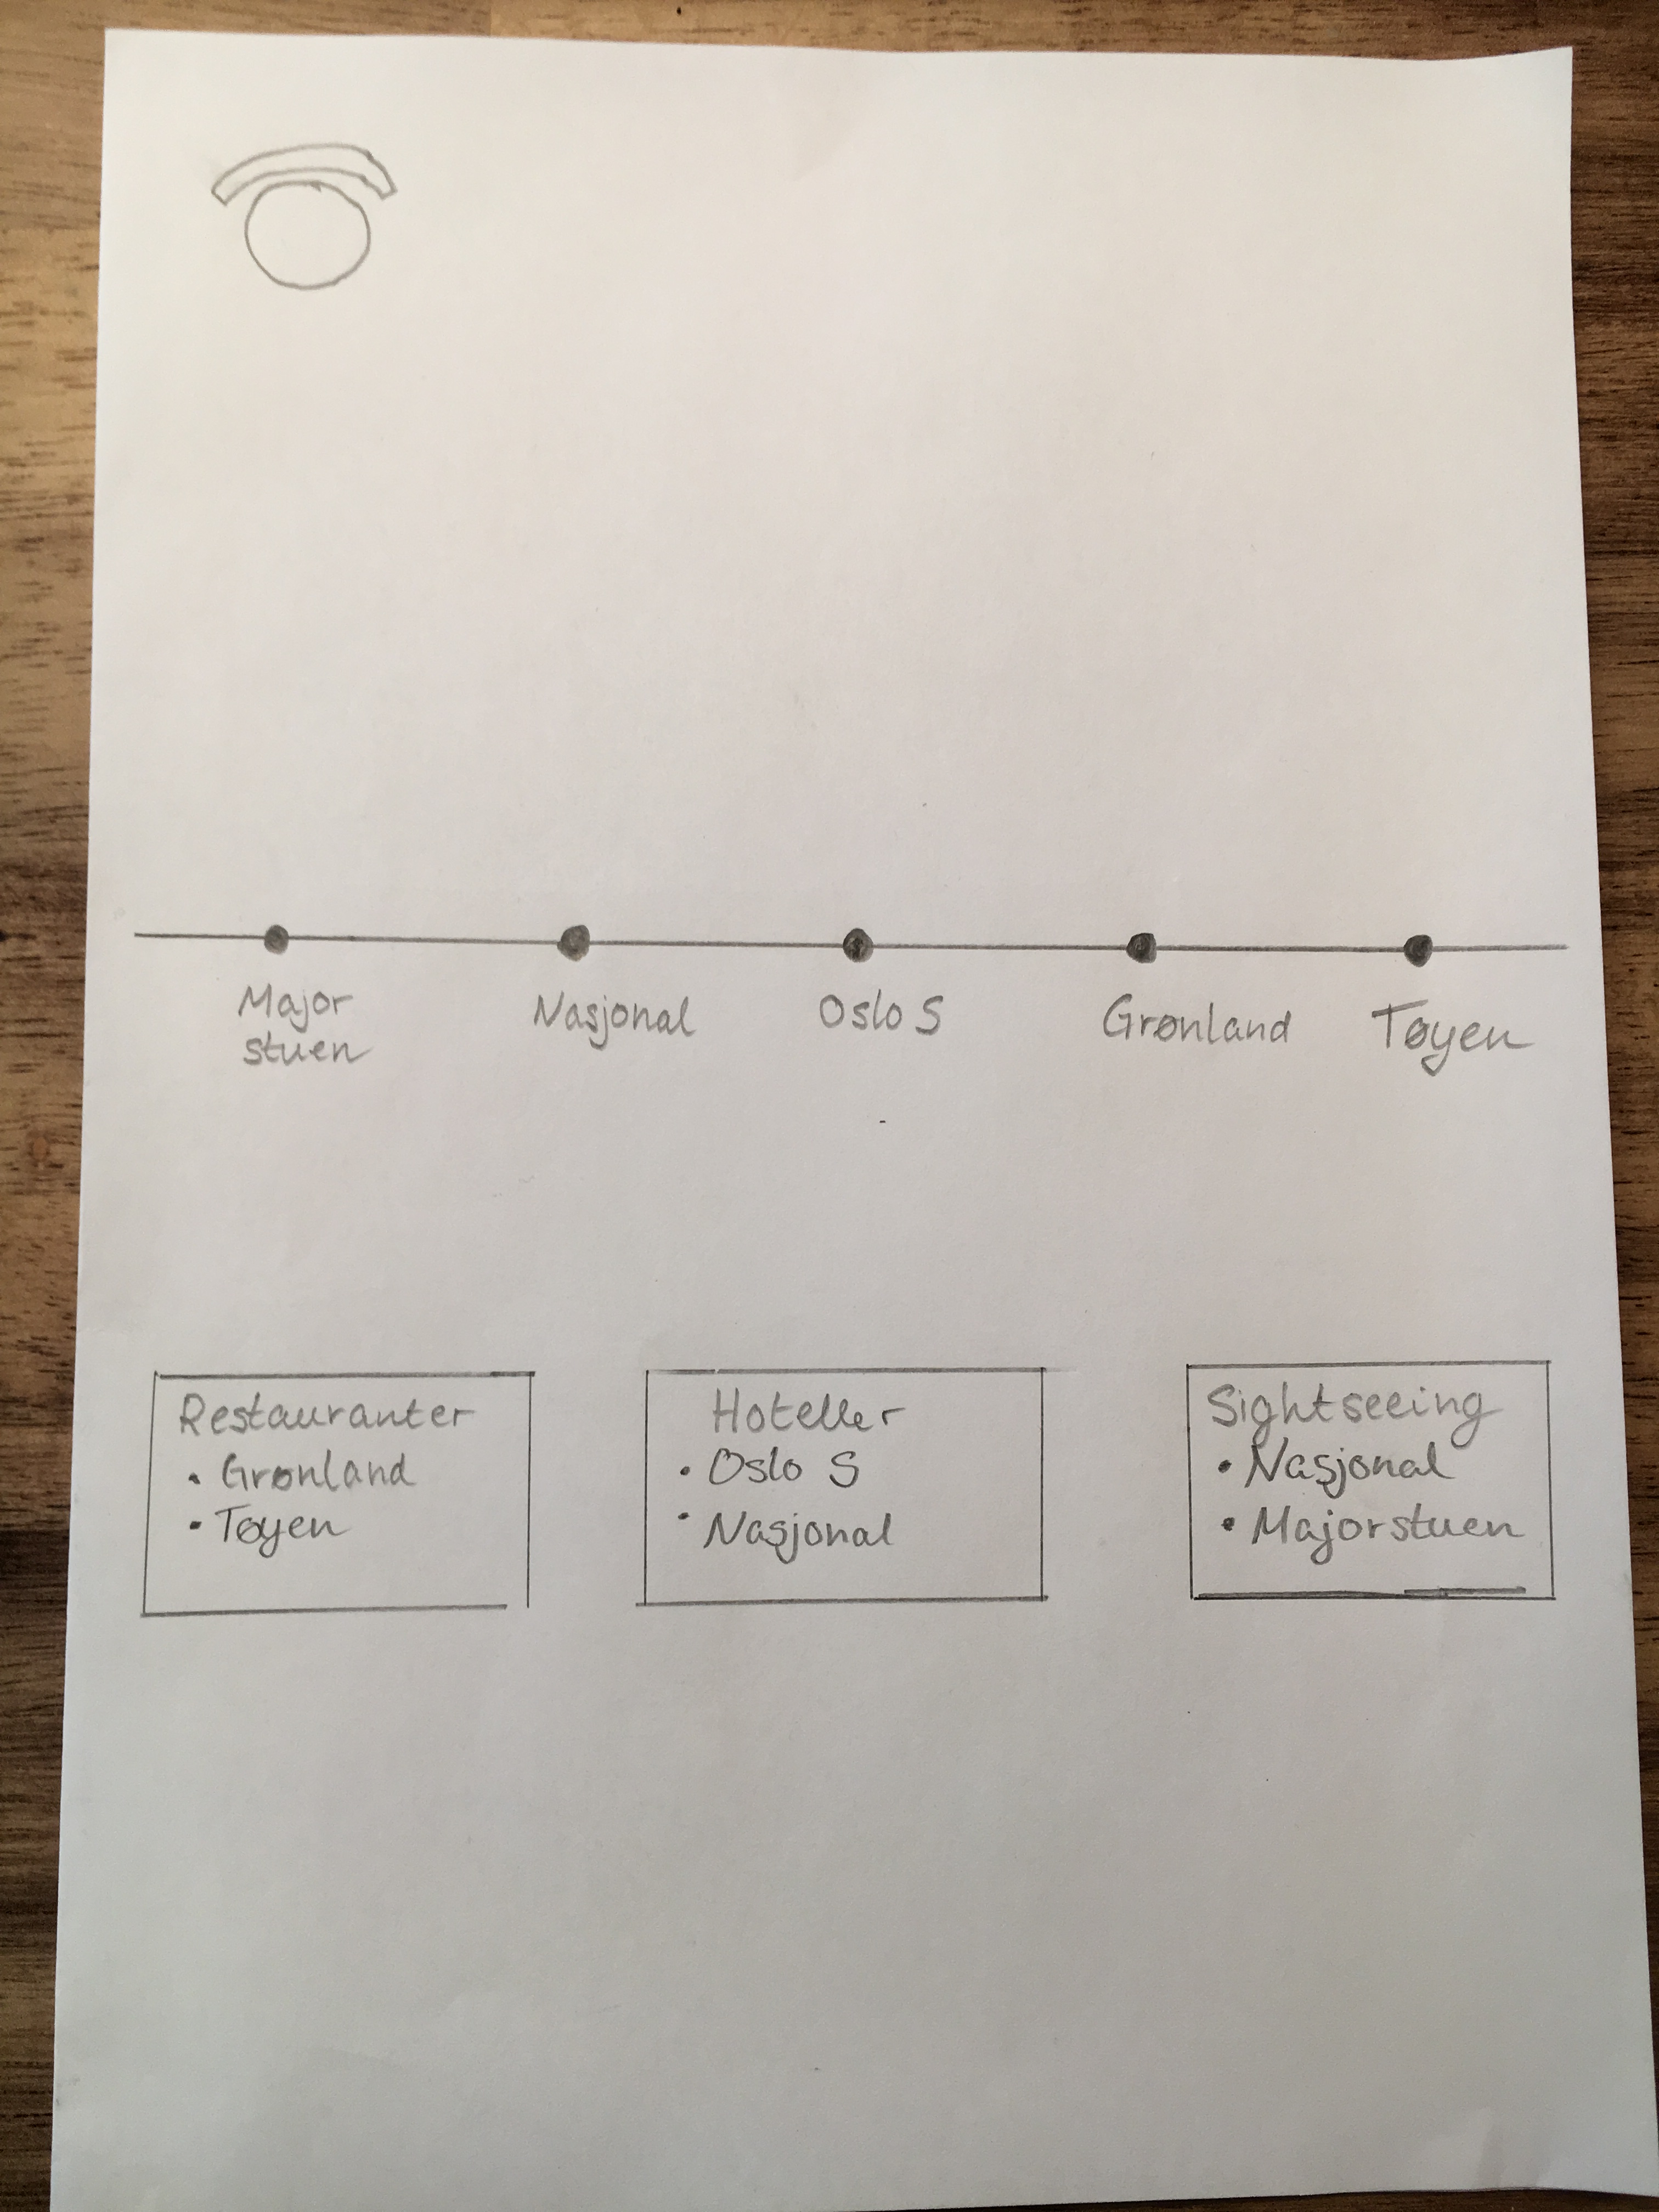 Major
stuen
Nasjonal
Oslo S
Grønland
Tøyen
Restauranter
• Grønland
• Tøyen
Hoteller
• Oslo S
• Nasjonal
Sightseeing
• Nasjonal
• Majorstuen